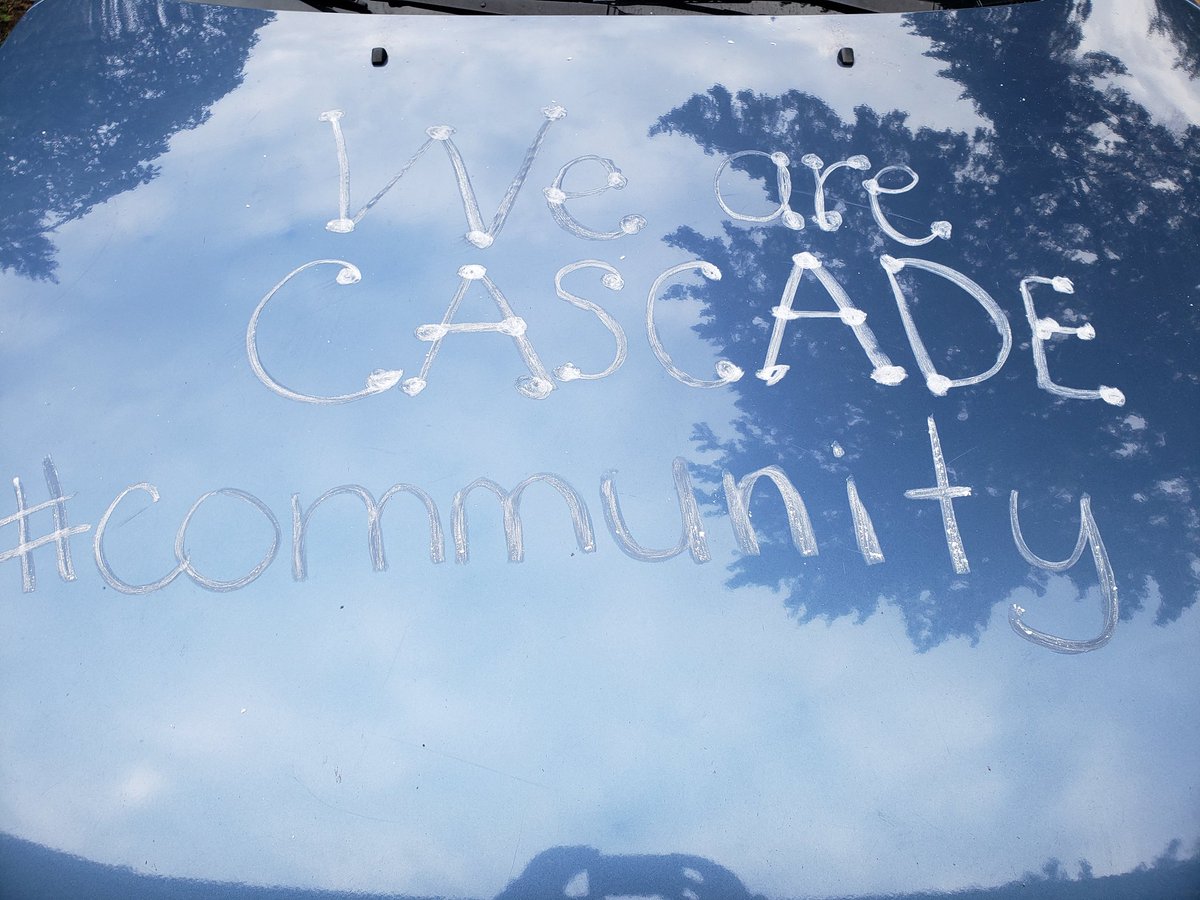 We are
CASCADE
#community